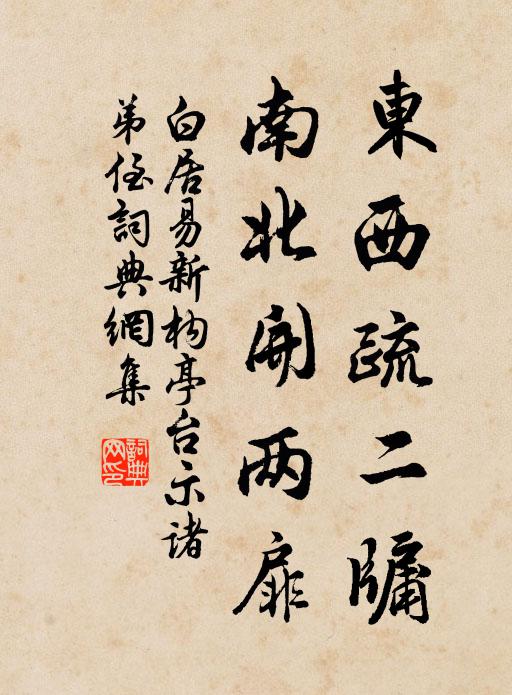 東西疏二牖
南北開两扉
白居易新构亭台示諸
弟侄詞典網集
詞典
网印